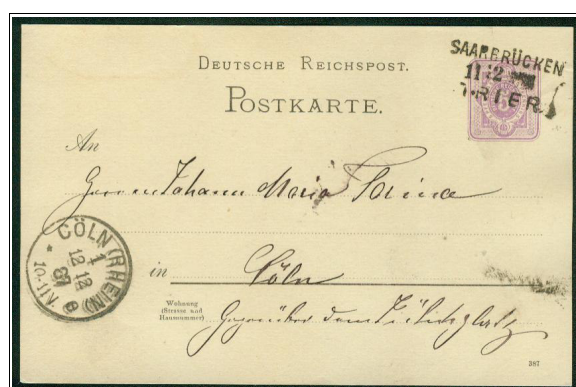 DEUTSCHE REICHSPOST.
POSTKARTE.
SAARBRÜCKEN
11 12
TRIER
An
Herrn Johann Maria Farina
CÖLN (RHEIN)
1
12 12
87
10-11V
in Cöln
Wohnung
(Strasse und
Hausnummer)
Gegenüber dem Jülichsplatz
387